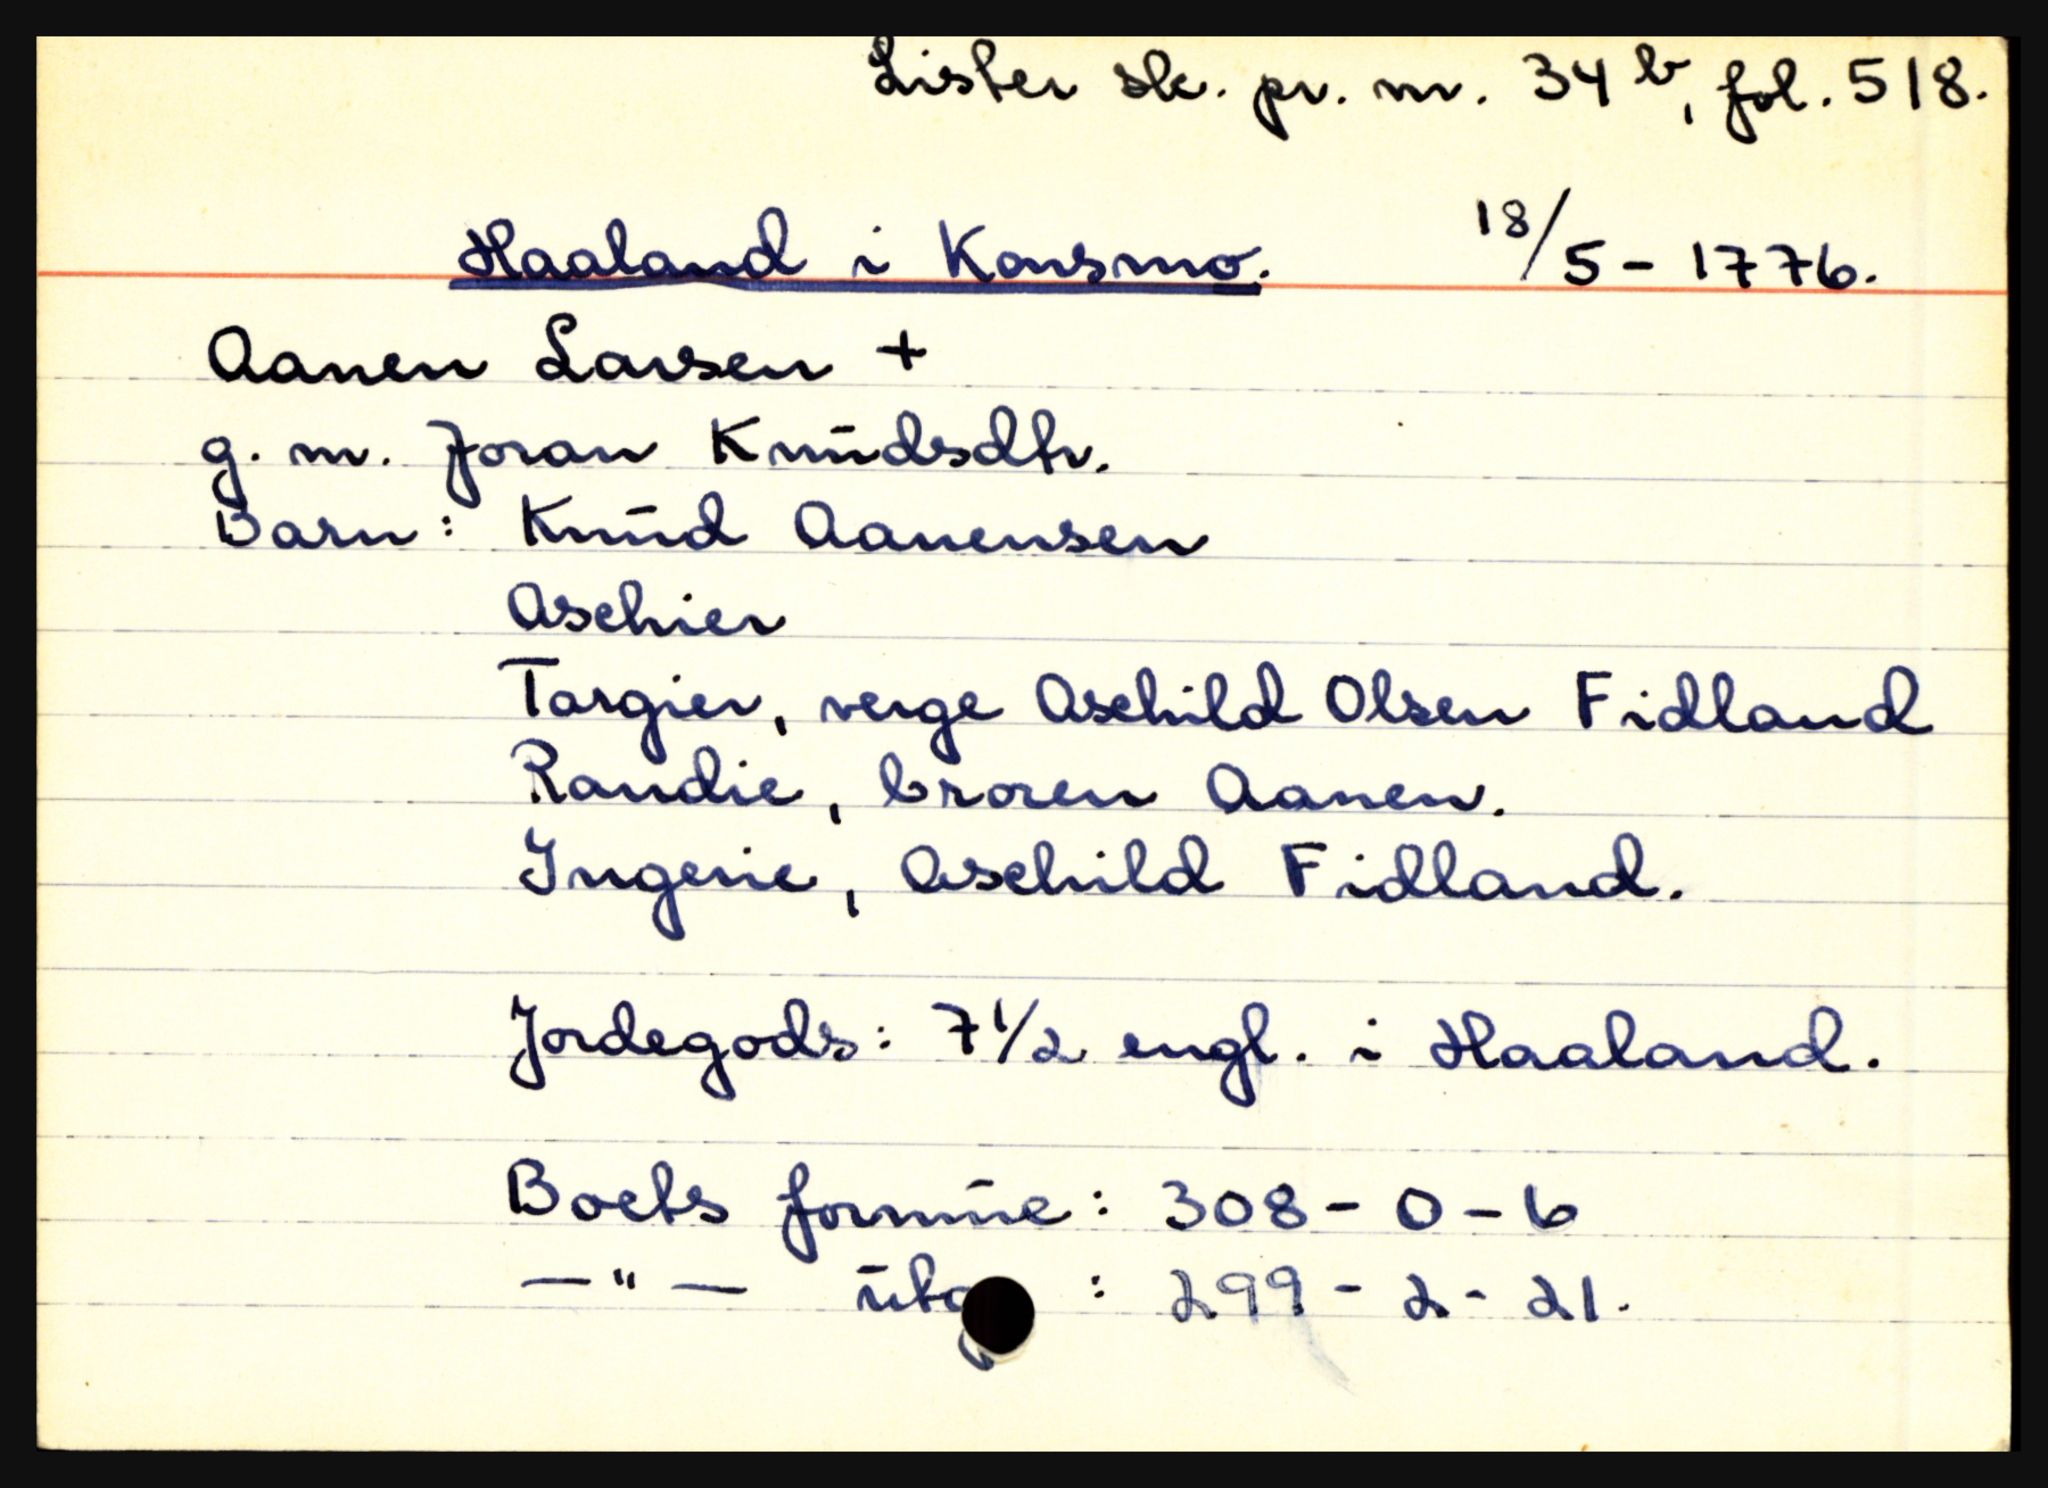 Lister sk. pr. nr. 34 b, fol. 518.
Haaland i Konsmo. 18/5 - 1776.
Aanen Larsen +
g. m. Joran Knudsdtr.
Barn: Knud Aanensen
Aschier
Targier, verge Aschild Olsen Fidland
Randie, broren Aanen.
Ingerie, Aschild Fidland.
Jordegods: 7 1/2 engl. i Haaland.
Boets formue: 308 - 0 - 6
— " — utg : 299 - 2 - 21.